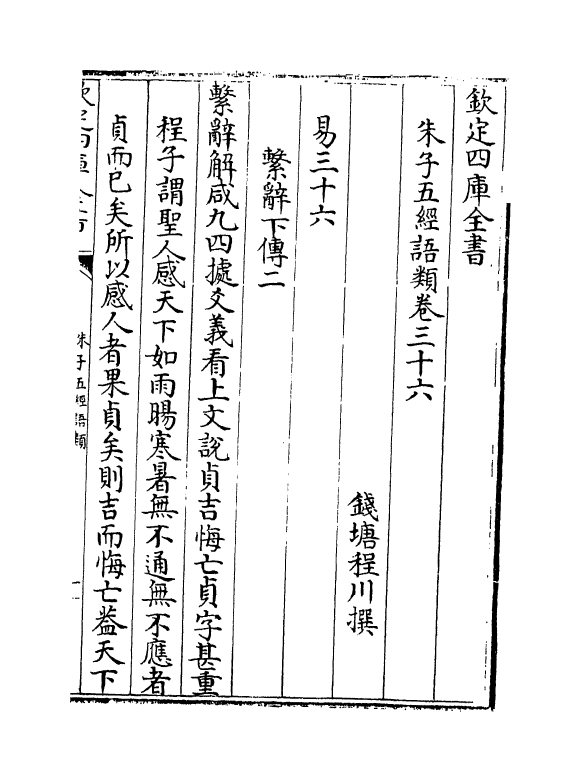 欽定四庫全書
朱子五經語類卷三十六
錢塘程川撰
易三十六
繫辭下傳二
繫辭解咸九四據爻義看上文說貞吉悔亡貞字甚重
程子謂聖人感天下如雨暘寒暑無不通無不應者
貞而已矣所以感人者果貞矣則吉而悔亡葢天下
朱子五經語類